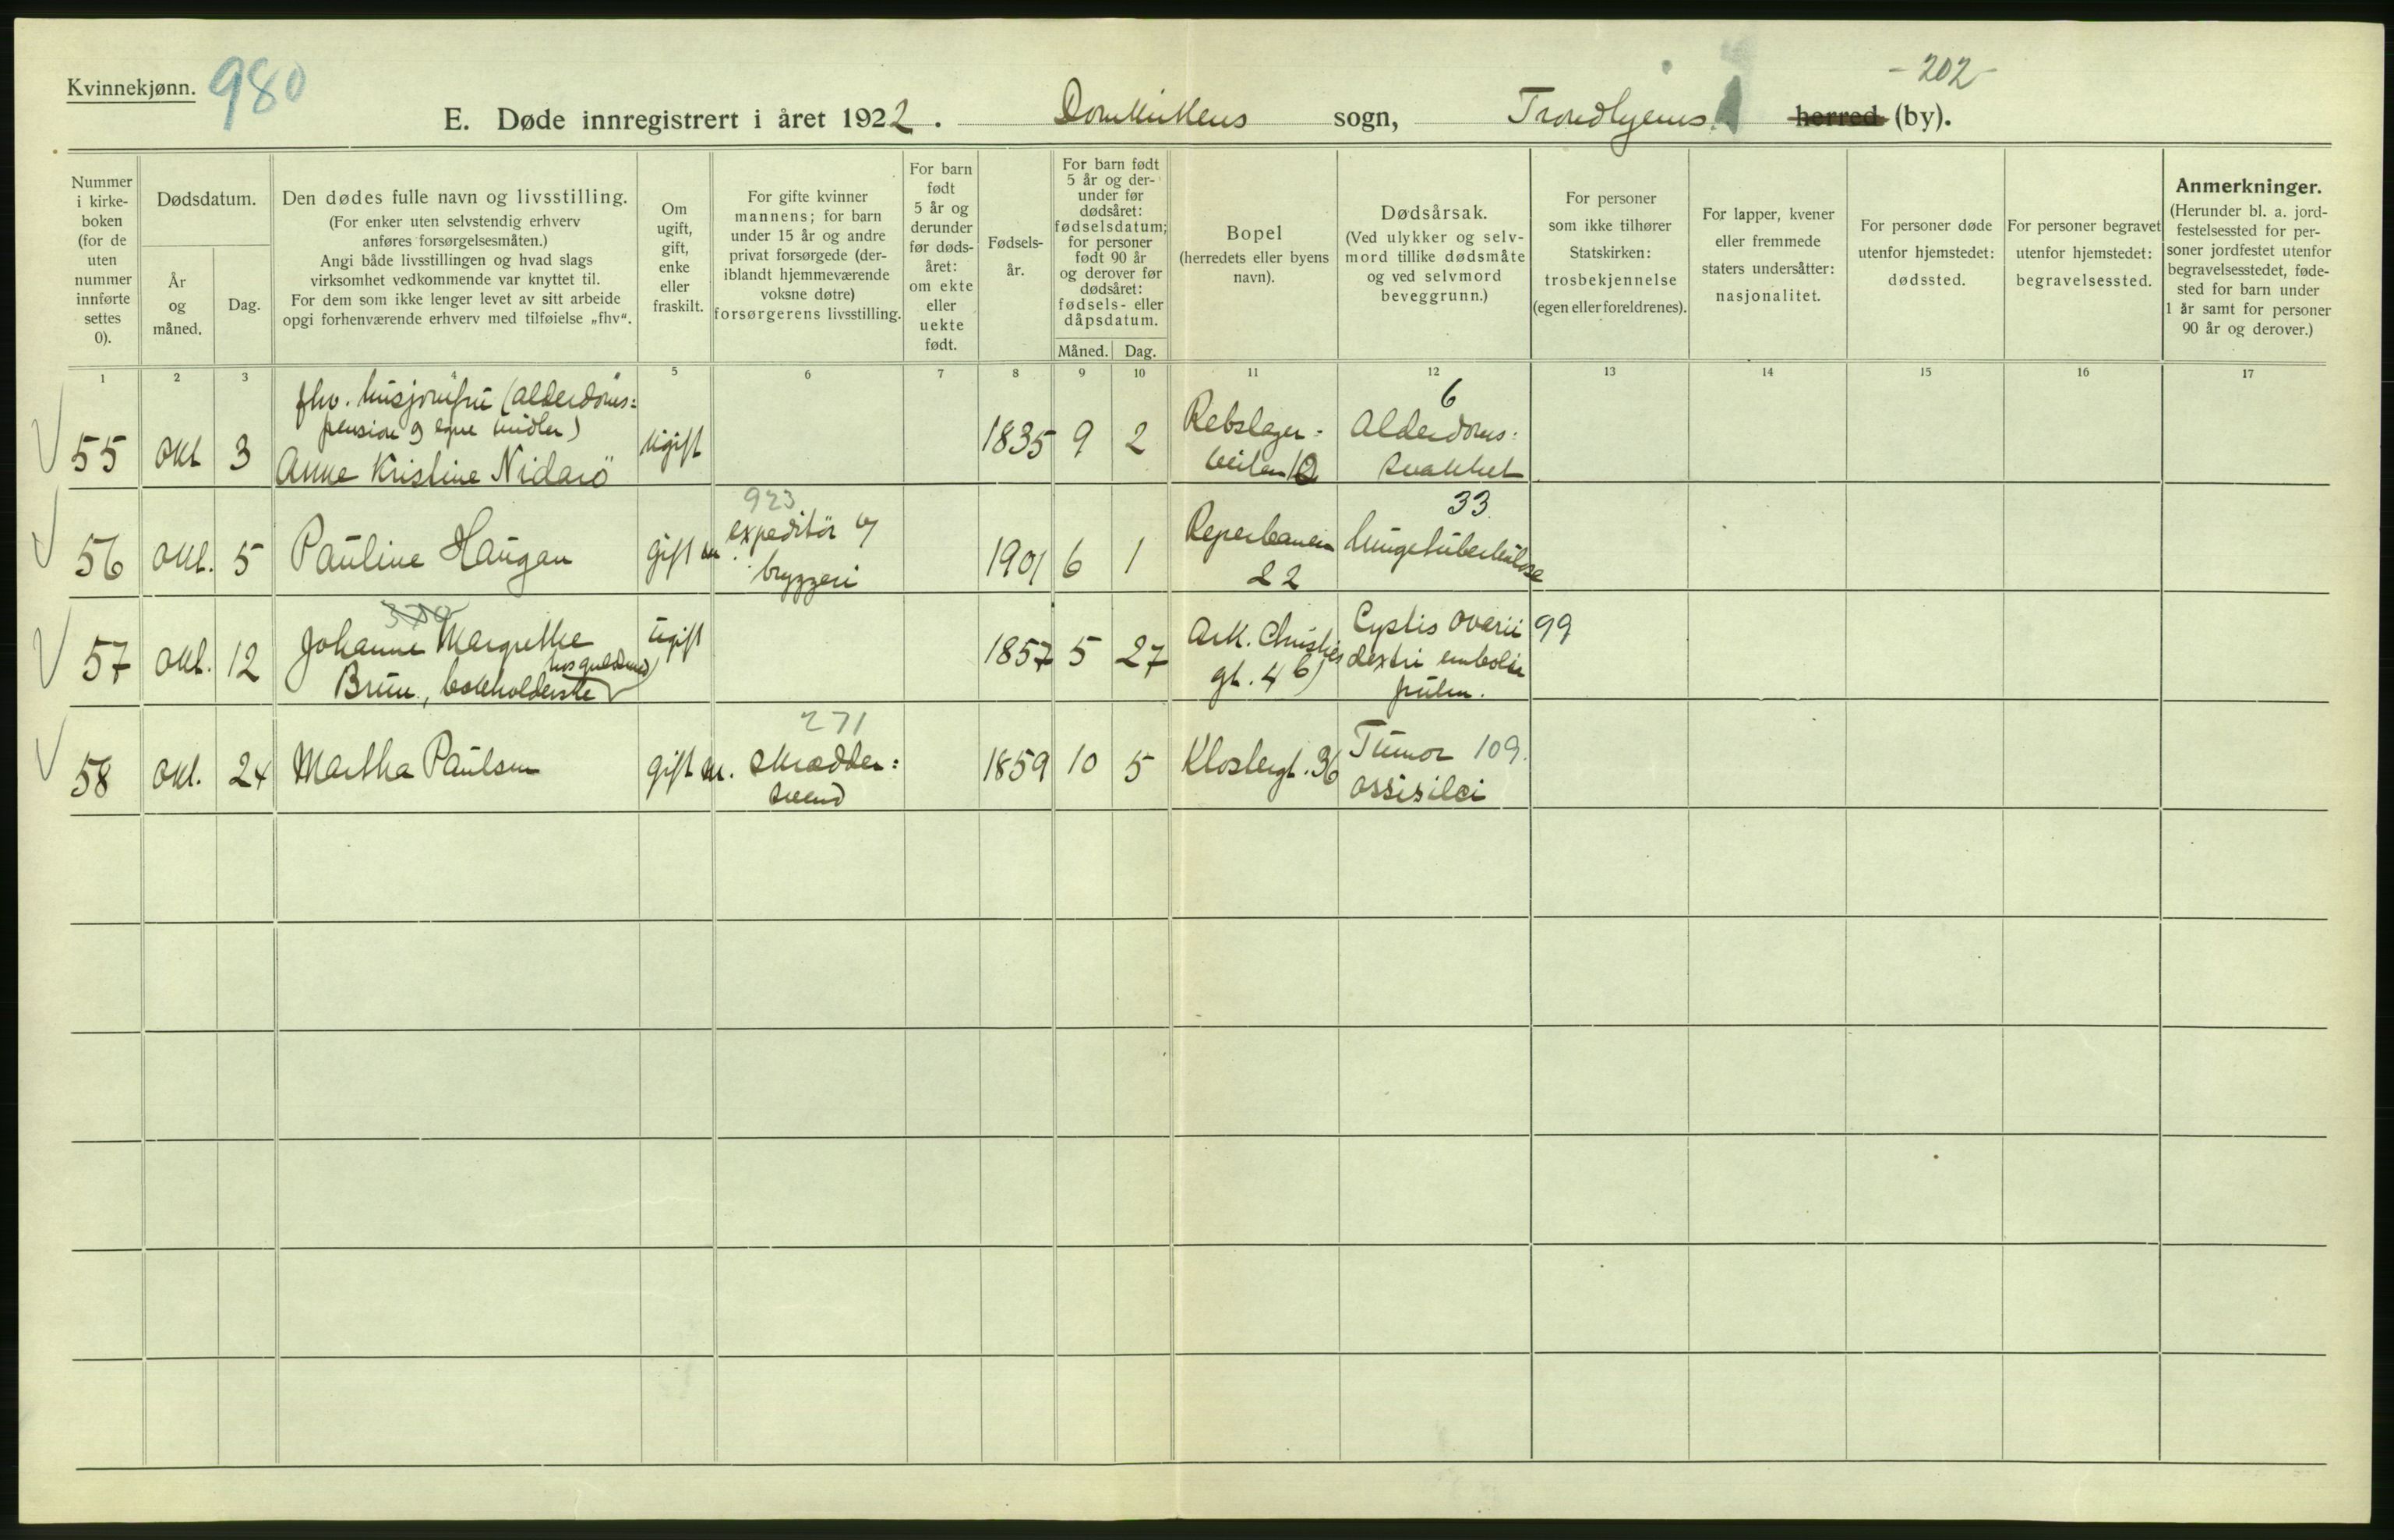 Kvinnekjønn. 980
- 202 -
E. Døde innregistrert i året 1922. Domkirkens sogn, Trondhjems herred (by).
Nummer
i kirke-
boken
(for de
uten
nummer
innførte
settes
0).
Dødsdatum.
År
og
måned.
Dag.
Den dødes fulle navn og livsstilling.
(For enker uten selvstendig erhverv
anføres forsørgelsesmåten.)
Angi både livsstillingen og hvad slags
virksomhet vedkommende var knyttet til.
For dem som ikke lenger levet av sitt arbeide
opgi forhenværende erhverv med tilføielse „fhv“.
Om
ugift,
gift,
enke
eller
fraskilt.
For gifte kvinner
mannens; for barn
under 15 år og andre
privat forsørgede (der-
iblandt hjemmeværende
voksne døtre)
forsørgerens livsstilling.
For barn
født
5 år og
derunder
før døds-
året:
om ekte
eller
uekte
født.
Fødsels-
år.
For barn født
5 år og der-
under før
dødsåret:
fødselsdatum;
for personer
født 90 år
og derover før
dødsåret:
fødsels- eller
dåpsdatum.
Måned. Dag.
Bopel
(herredets eller byens
navn).
Dødsårsak.
(Ved ulykker og selv-
mord tillike dødsmåte
og ved selvmord
beveggrunn.)
For personer
som ikke tilhører
Statskirken:
trosbekjennelse
(egen eller foreldrenes).
For lapper, kvener
eller fremmede
staters undersåtter:
nasjonalitet.
For personer døde
utenfor hjemstedet:
dødssted.
For personer begravet
utenfor hjemstedet:
begravelsessted.
Anmerkninger.
(Herunder bl. a. jord-
festelsessted for per-
soner jordfestet utenfor
begravelsesstedet, føde-
sted for barn under
1 år samt for personer
90 år og derover.)
1 2 3 4 5 6 7 8 9 10 11 12 13 14 15 16 17
fhv. husjomfru (alderdoms=
pension og egne midler)
55 okt 3 Anne Kristine Nidarö ugift 1835 9 2
Rebslager=
veiten 12
6
Alderdoms=
svakhet
56 okt. 5 Pauline Haugan gift m.
923
expeditör v/
bryggeri
1901 6 1
Reperbanen
22
33
lungetuberkulose
57 okt. 12
Johanne Margrethe
Bruu., bokholderske
ugift 1857 5 27
Ark. Christies
gt. 4 b)
Cystis ovarii 99
dextri emboli
pulm.
58 okt. 24 Martha Paulsen gift m.
271
skrædder=
svend
1859 10 5 Klostergt. 36
Tumor 109.
ossis ilei